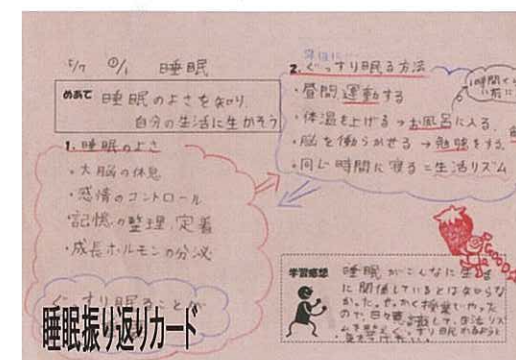 5/7 睡眠
めあて 睡眠のよさを知り、
自分の生活に生かそう
1. 睡眠のよさ
・大脳の休息
・感情のコントロール
・記憶の整理、定着
・成長ホルモンの分泌
ぐっすり眠ることが
2. ぐっすり眠る方法
・昼間運動する
・体温を上げる→お風呂に入る
・脳を働かせる→勉強をする
・同じ時間に寝る=生活リズム
1時間くらい前に
GOOD
学習感想
睡眠がこんなに生活
に関係しているとは知らな
かった。せっかく授業でやった
ので、日々意識して、生活リズ
睡眠振り返りカード